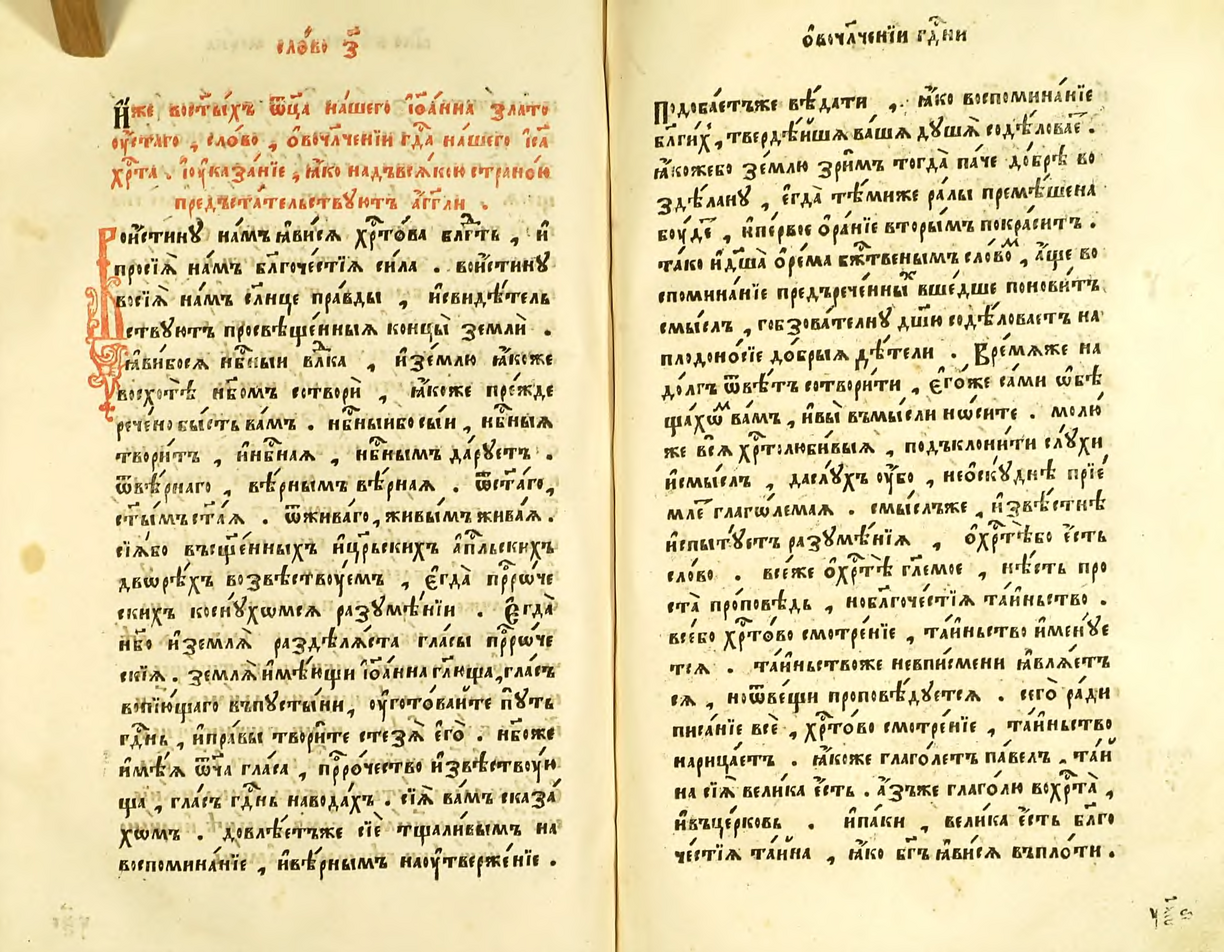 сло́во з҃
И҆́же востⷭ҇ы́хъ ѿц҃а на́шего і҆ѡа́нна злато
оу҆́стаго , сло́во , ѡ҆вочл҃че́нїи гдⷭ҇а на́шего і҆сⷭ҇а
хрⷭ҇та̀ . і҆оу҆каза́нїе , ꙗ҆́ко надъвсѧ́кою страно́ю
предъста́тельствуютъ а҆́гг҃ли .
Вои́стинꙋ на́мъ ꙗ҆ви́сѧ хрⷭ҇то́ва блгⷣть , и҆
просїѧ̀ на́мъ бл҃гоче́стїѧ си́ла . вои́стинꙋ
восїѧ̀ на́мъ сл҃нце пра́вды , и҆свидѣ́тель
ствуютъ просвѣще́нныѧ концы̀ землѝ .
ꙗ҆ви́босѧ нб҃ныи влⷣка , и҆зе́млю ꙗ҆́коже
восхотѣ̀ нб҃омъ сотворѝ , ꙗ҆́коже пре́жде
рече́но бы́сть ва́мъ . нб҃ныибосы́и , нб҃ныѧ
твори́тъ , и҆нб҃наѧ , нб҃нымъ да́руетъ .
ѿвѣ́рнаго , вѣ́рнымъ вѣ́рнаѧ . ѿст҃а́го ,
ст҃ы́мъ ст҃а́ѧ . ѿжива́го , живы́мъ жива́ѧ .
сїѧ́бо въсщ҃е́нныхъ и҆цр҃ьскихъ а҆пⷭ҇льскихъ
дво́рѣхъ возвѣствꙋ́емъ , є҆гда̀ прⷪ҇ро́че
скихъ коснꙋ́хѡмсѧ разꙋмѣ́нїи . Є҆гда̀
нб҃о и҆землѧ̀ раздѣлѧ́ста гла́сы прⷪ҇ро́че
скїѧ . землѧ̀ и҆мѣ́ющи і҆ѡа́нна гл҃юща , гла́съ
вопїю́щаго въпꙋсты́ни , оу҆гото́ваите пꙋ́ть
гдⷭ҇нь , и҆пра́вы твори́те стезѧ̀ є҆го̀ . нб҃оже
и҆мѣ́ѧ ѿч҃а гла́са , прⷪ҇ро́чество и҆звѣ́ствꙋю
ща , гла́съ гдⷭ҇нь наводѧ́хъ . сїѧ̀ ва́мъ сказа́
хѡмъ . довлѣ́етъже сїѐ тщали́вымъ на
воспомина́нїе , и҆вѣ́рнымъ наоу҆тверже́нїе .
ѡ҆вочл҃че́нїи гдⷭ҇ни
Подоба́етъже вѣ́дати , ꙗ҆́ко воспомина́нїе
бл҃ги́хъ , тверде́йшѧ ва́шѧ дꙋ́шѧ содѣ́ловаеⷮ .
ꙗ҆́кожебо зе́млю зри́мъ тогда̀ па́че до́брѣ во
здѣ́ланꙋ , є҆гда̀ тѣ́миже ра́лы премѣ́шена
бꙋ́деⷮ , и҆пе́рвое о҆ра́нїе вторы́мъ покра́ситъ .
та́ко и҆дш҃а̀ о҆ре́ма бжⷭ҇твенымъ сло́воⷨ , а҆́ще во
спомина́нїе предърече́нныⷯ вше́дше понови́тъ
смы́слъ , гобзова́телнꙋ дш҃ю содѣ́ловаетъ на
плодоно́сїе до́брыѧ дѣ́тели . Вре́мѧже на
до́лгъ ѿвѣ́тъ сотвори́ти , є҆го́же са́ми ѡ҆бѣ
ща́хѡⷨ ва́мъ , и҆вы̀ въмы́сли но́сите . молю́
же всѧ̀ хрⷭ҇толюби́выѧ , подъклони́ти слꙋ́хи
и҆смы́слъ , даслꙋ́хъ оу҆́бо , нео҆скꙋ́днѣ прїе́
млеⷮ глаго́лемаѧ . смы́слъже , и҆звѣ́стнѣ
и҆спытꙋ́етъ разꙋмѣ́нїѧ , о҆хрⷭ҇тѣ́бо є҆́сть
сло́во . все́же о҆хрⷭ҇тѣ̀ гл҃емое , нѣ́сть про
ста̀ проповѣ́дь , ноблгоче́стїѧ та́иньство .
все́бо хрⷭ҇то́во смотре́нїе , та́иньство и҆менꙋ́е
тсѧ . та́иньствоже невписмени ꙗ҆влѧ́етъ
сѧ , ноѿве́щи проповѣ́дꙋетсѧ . сего̀ ра́ди
писа́нїе всѐ , хрⷭ҇то́во смотре́нїе , та́иньство
нарица́етъ . ꙗ҆́коже глаго́летъ па́велъ , та́и
на сїѧ̀ вели́ка є҆́сть . а҆́зъже глаго́лю вохрⷭ҇та̀ ,
и҆въце́рковь . и҆па́ки , вели́ка є҆́сть бл҃го
че́стїѧ та́ина , ꙗ҆́ко бг҃ъ ꙗ҆ви́сѧ въпло́ти .